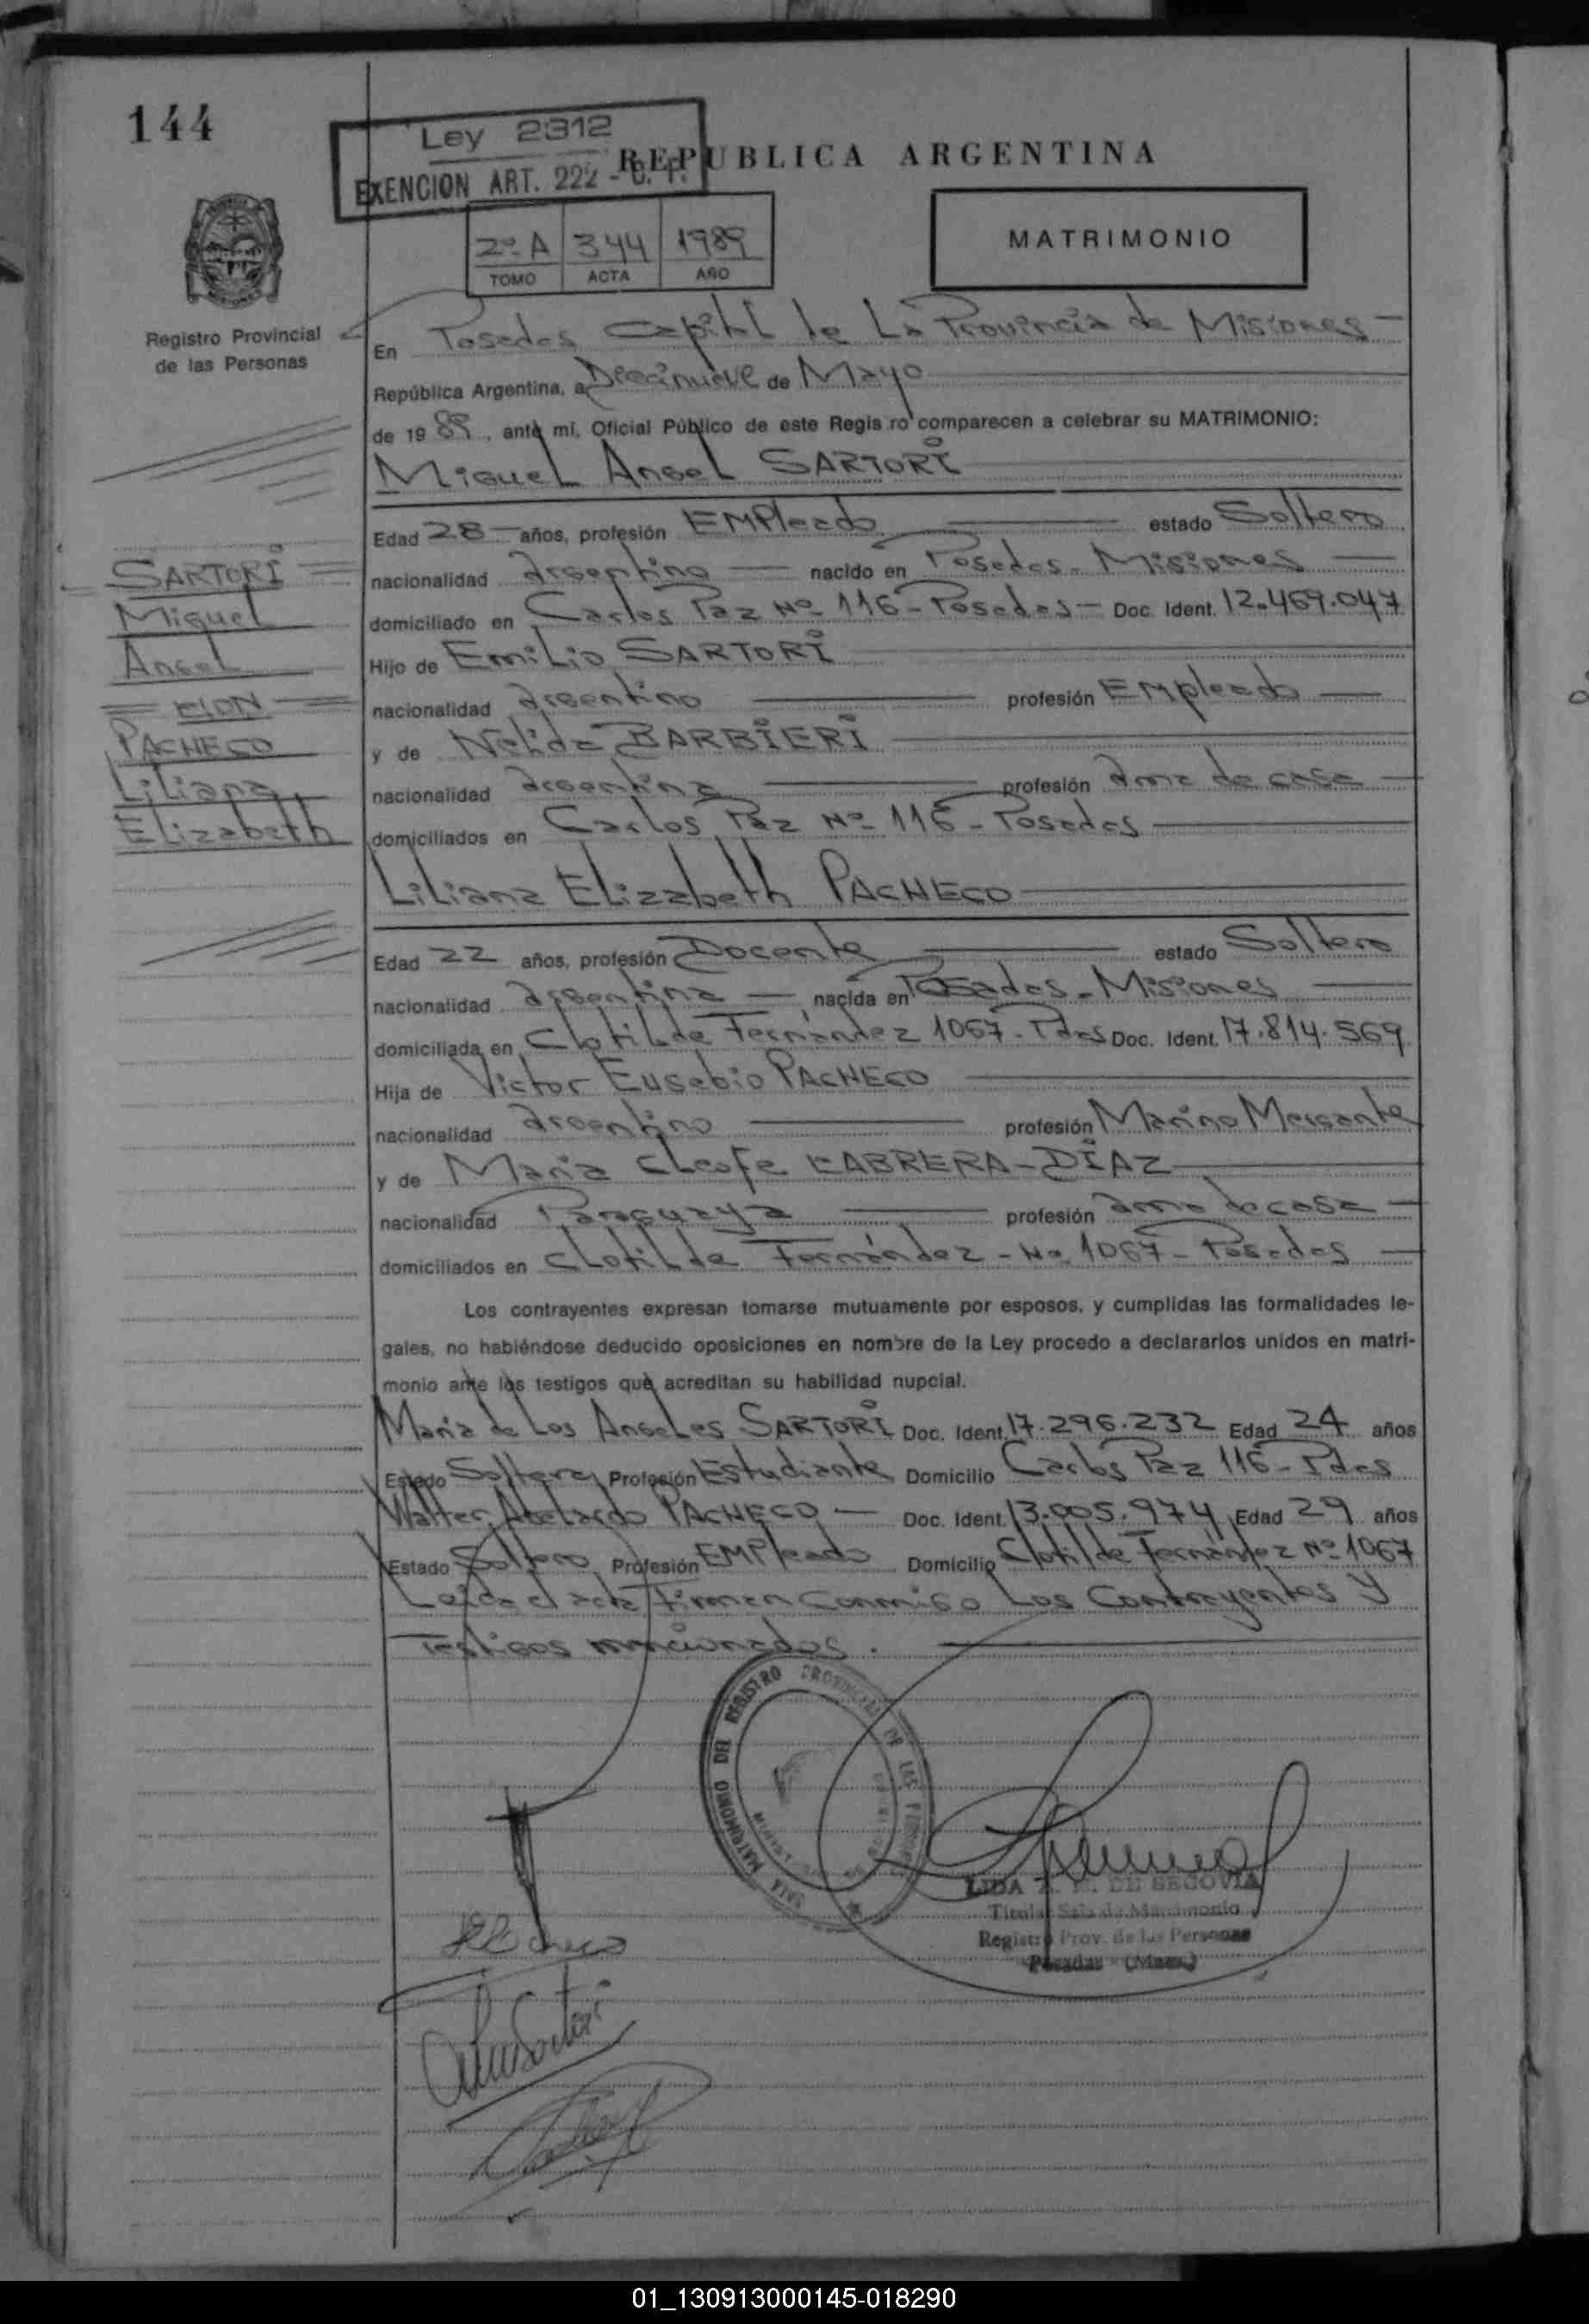 144
Ley 2312
EXENCION ART. 222 - C. F.
REPUBLICA ARGENTINA
2º A 344 1989
TOMO ACTA AÑO
MATRIMONIO
Registro Provincial
de las Personas
En Posadas Capital de La Provincia de Misiones
República Argentina, a Diecinueve de Mayo
de 19 89, ante mí, Oficial Público de este Regis ro comparecen a celebrar su MATRIMONIO:
Miguel Angel SARTORI
Edad 28 años, profesión Empleado estado Soltero
nacionalidad Argentino nacido en Posadas - Misiones
domiciliado en Carlos Paz Nº 116 - Posadas - Doc. Ident. 12.469.047
Hijo de Emilio SARTORI
nacionalidad Argentino profesión Empleado
y de Nelida BARBIERI
nacionalidad Argentina profesión Ama de casa
domiciliados en Carlos Paz Nº 116 - Posadas
SARTORI
Miguel
Angel
CON
PACHECO
Liliana
Elizabeth
Liliana Elizabeth PACHECO
Edad 22 años, profesión Docente estado Soltera
nacionalidad Argentina nacida en Posadas - Misiones
domiciliada en Clotilde Fernández 1067 - Pdas Doc. Ident. 17.814.569
Hija de Victor Eusebio PACHECO
nacionalidad Argentino profesión Marino Mercante
y de Maria Cleofe CABRERA-DIAZ
nacionalidad Paraguaya profesión Ama de casa
domiciliados en Clotilde Fernández - Nº 1067 - Posadas
Los contrayentes expresan tomarse mutuamente por esposos, y cumplidas las formalidades le-
gales, no habiéndose deducido oposiciones en nombre de la Ley procedo a declararlos unidos en matri-
monio ante los testigos que acreditan su habilidad nupcial.
Maria de Los Angeles SARTORI Doc. Ident. 17.296.232 Edad 24 años
Estado Soltera Profesión Estudiante Domicilio Carlos Paz 116 - Pdas
Walter Abelardo PACHECO Doc. Ident. 13.005.974 Edad 29 años
Estado Soltero Profesión Empleado Domicilio Clotilde Fernández Nº 1067
Leida el acta Firman Conmigo Los Contrayentes y
Testigos mencionados.
SALA MATRIMONIO DEL REGISTRO PROVINCIAL DE LAS PERSONAS
LIDA DE SEGOVIA
Titular Sala de Matrimonio
Registro Prov. de las Personas
Posadas (Mnes.)
01_130913000145-018290